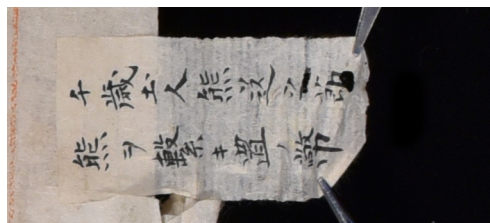 千歳土人熊送之節
熊ヲ繋キ置ノ幣